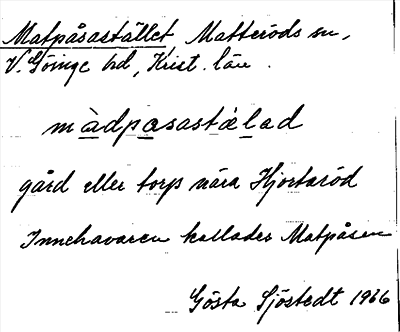 Matpåsastället Matteröds sn,
V. Göinge hd, Krist. län.
màdpasastǽlad
gård eller torp nära Hjortaröd
Innehavaren kallades Matpåsen
Gösta Sjöstedt 1936